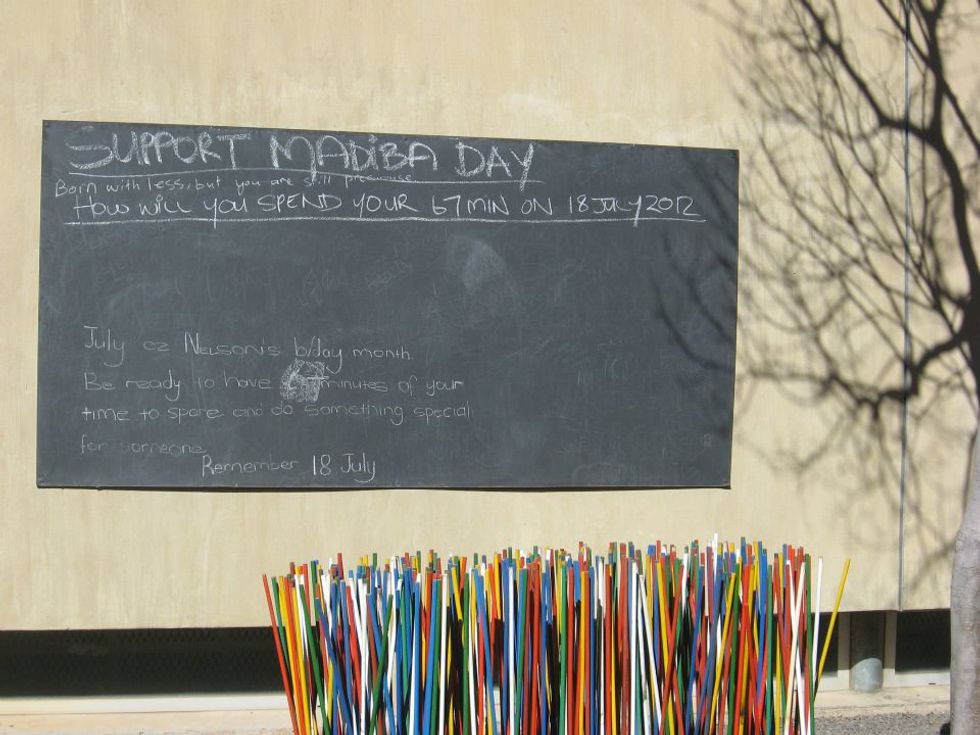 SUPPORT MADIBA DAY
Born with less, but you are still preciouse
HOW WILL YOU SPEND YOUR 67 MIN ON 18 JULY 2012
July cz NELSON's b/day month.
Be ready to have 67 minutes of your
time to spare and do something special
for someone
Remember 18 July